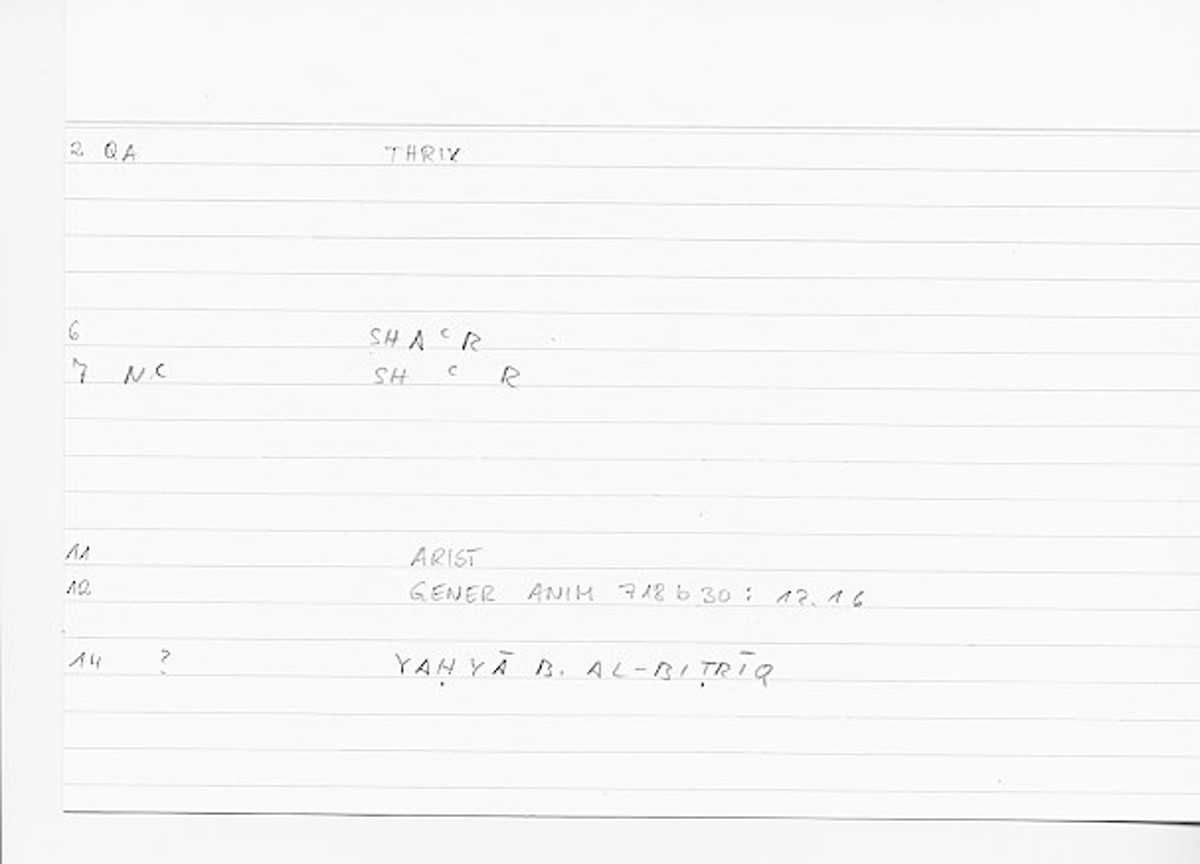 2 QA THRIX
6 SHAʿR
7 N.C SH ʿ R
11 ARIST
12 GENER ANIM 718 b 30 : 12.16
14 ? YAḤYĀ B. AL-BIṬRĪQ